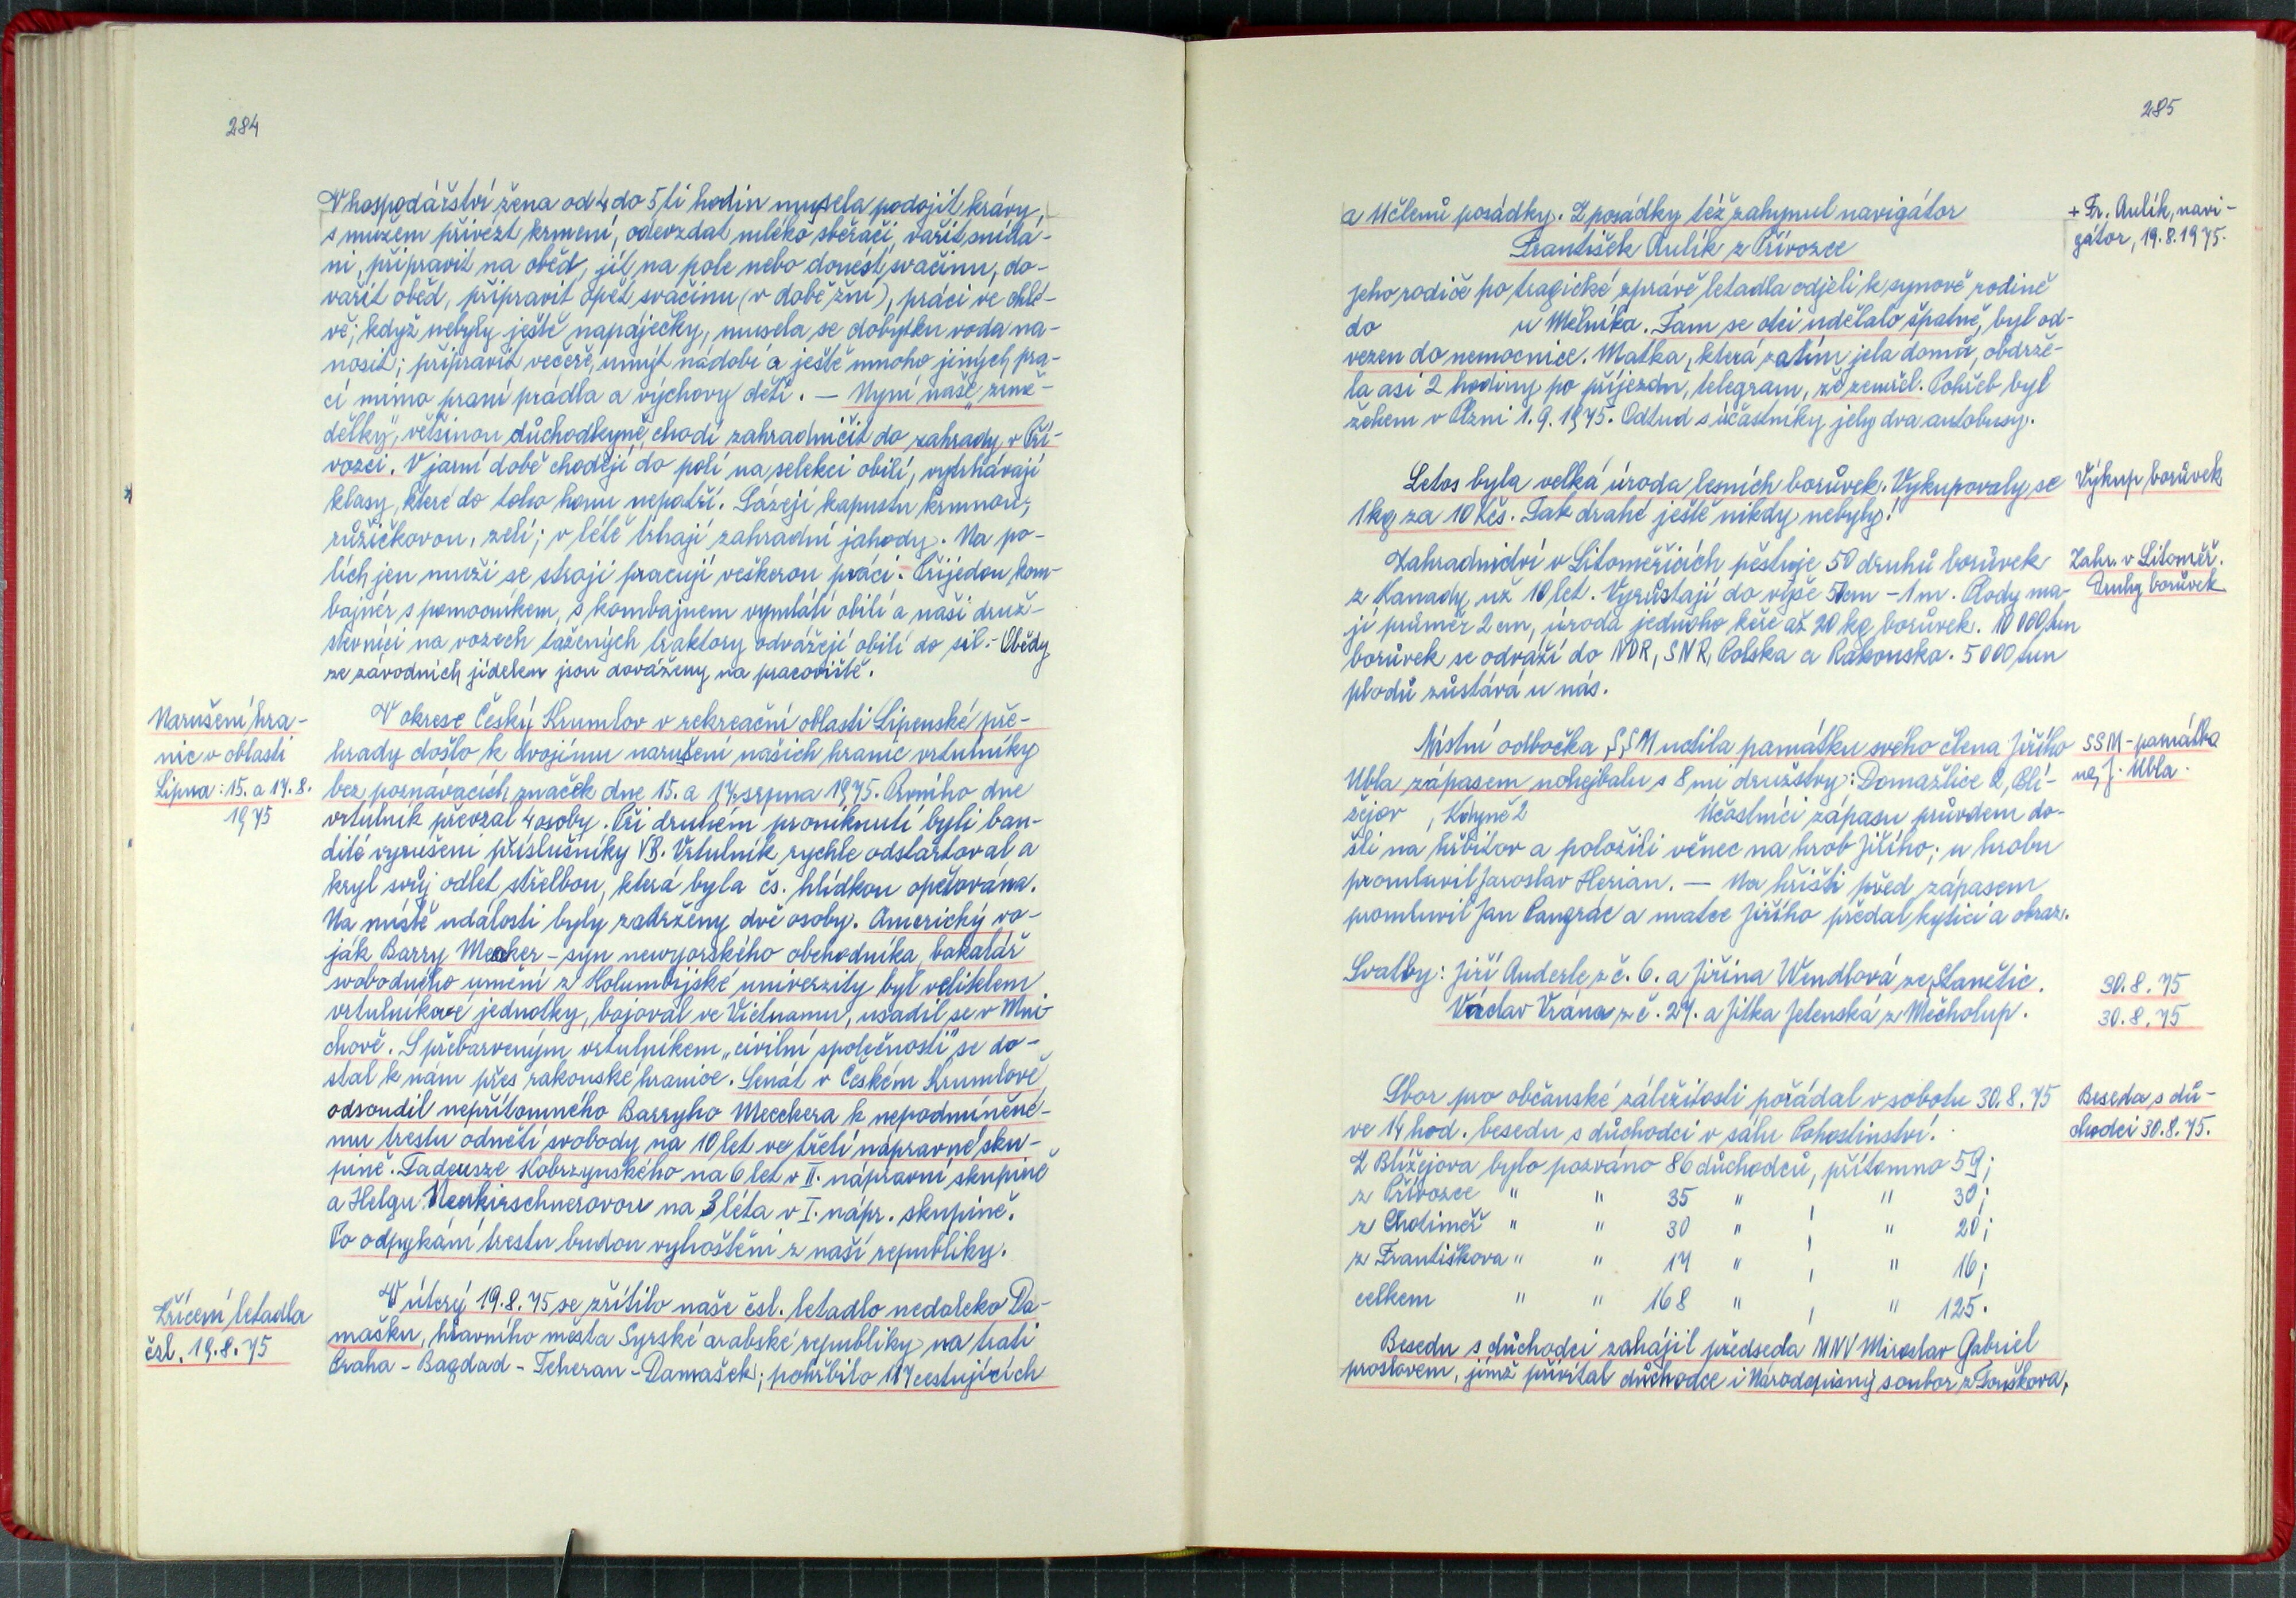 284
V hospodářství žena od 4 do 5ti hodin musela podojit krávy,
s mužem přivézt krmení, odevzdat mléko sběrači, vařit snída-
ni, připravit na oběd, jít na pole nebo donést svačinu, do-
vařit oběd, připravit opět svačinu (v době žní), práci ve chlé-
vě; když nebyly ještě napáječky, musela se dobytku voda na-
nosit; připravit večeři, umýt nádobí a ještě mnoho jiných pra-
cí mimo praní prádla a výchovy dětí. — Nyní naše „země-
dělky", většinou důchodkyně, chodí zahradničit do zahrady v Pří-
vozci. V jarní době chodějí do polí na selekci obilí, vytrhávají
klasy, které do toho honu nepatří. Sázejí kapustu krmnou,
růžičkovou, zelí; v létě trhají zahradní jahody. Na po-
lích jen muži se stroji pracují veškerou práci. Přijedou kom-
bajnér s pomocníkem, s kombajnem vymlátí obilí a naši druž-
stevníci na vozech tažených traktory odvážejí obilí do sil. Obědy
ze závodních jídelen jsou dováženy na pracoviště.
Narušení hra-
nic v oblasti
Lipna: 15. a 17. 8.
1975
V okrese Český Krumlov v rekreační oblasti Lipenské pře-
hrady došlo k dvojímu narušení našich hranic vrtulníky
bez poznávacích značek dne 15. a 17. srpna 1975. Prvního dne
vrtulník převzal 4 osoby. Při druhém proniknutí byli ban-
dité vyrušeni příslušníky VB. Vrtulník rychle odstartoval a
kryl svůj odlet střelbou, která byla čs. hlídkou opětována.
Na místě události byly zadrženy dvě osoby. Americký vo-
ják Barry Meeker – syn newyorského obchodníka, bakalář
svobodného umění z Kolumbijské univerzity byl velitelem
vrtulníkové jednotky, bojoval ve Vietnamu, usadil se v Mni-
chově. S přebarveným vrtulníkem „civilní společnosti" se do-
stal k nám přes rakouské hranice. Senát v Českém Krumlově
odsoudil nepřítomného Barryho Meeckera k nepodmíněné-
mu trestu odnětí svobody na 10 let ve třetí nápravné sku-
pině. Tadeusze Kobrzynského na 6 let v II. nápravní skupině
a Helgu Neukirschnerovou na 3 léta v I. nápr. skupině.
Po odpykání trestu budou vyhoštěni z naší republiky.
Zřícení letadla
čsl. 19. 8. 75
V úterý 19. 8. 75 se zřítilo naše čsl. letadlo nedaleko Da-
mašku, hlavního města Syrské arabské republiky na trati
Praha – Bagdad – Teheran – Damašek; pohřbilo 117 cestujících
285
a 11 členů posádky. Z posádky též zahynul navigátor
František Aulík z Přívozce
+ Fr. Aulík, navi-
gátor, 19. 8. 1975.
Jeho rodiče po tragické zprávě letadla odjeli k synově rodině
do u Mělníka. Tam se otci udělalo špatně, byl od-
vezen do nemocnice. Matka, která zatím jela domů, obdrže-
la asi 2 hodiny po příjezdu, telegram, že zemřel. Pohřeb byl
žehem v Plzni 1. 9. 1975. Odtud s účastníky jely dva autobusy.
Letos byla velká úroda lesních borůvek. Vykupovaly se
1 kg za 10 Kčs. Tak drahé ještě nikdy nebyly!
Výkup borůvek
Zahradnictví v Litoměřicích pěstuje 50 druhů borůvek
z Kanady už 10 let. Vyrůstají do výše 50cm – 1 m. Plody ma-
jí průměr 2 cm, úroda jednoho keře až 20 kg borůvek. 10 000 tun
borůvek se odváží do NDR, SNR, Polska a Rakouska. 5 000 tun
plodů zůstává u nás.
Zahr. v Litoměř.
Druhy borůvek
Místní odbočka SSM uctila památku svého člena Jiřího
Ubla zápasem nohejbalu s 8 mi družstvy: Domažlice 2, Blí-
žejov , Kdyně 2 Účastníci zápasu průvodem do-
šli na hřbitov a položili věnec na hrob Jiřího; u hrobu
promluvil Jaroslav Herian. — Na hřišti před zápasem
promluvil Jan Pangrác a matce Jiřího předal kytici a obraz.
SSM – památka
na J. Ubla.
Svatby: Jiří Anderle z č. 6. a Jiřina Wendlová ze Stanětic.
Václav Vrána z č. 27. a Jitka Jelenská z Měcholup.
30. 8. 75
30. 8. 75
Sbor pro občanské záležitosti pořádal v sobotu 30. 8. 75
ve 14 hod. besedu s důchodci v sálu Pohostinství.
Beseda s dů-
chodci 30. 8. 75.
Z Blížejova bylo pozváno 86 důchodců, přítomno 59;
z Přívozce " " 35 " , " 30;
z Chotiměř " " 30 " , " 20;
z Františkova " " 17 " , " 16;
celkem " " 168 " , " 125.
Besedu s důchodci zahájil předseda MNV Miroslav Gabriel
proslovem, jímž přivítal důchodce i Národopisný soubor z Touškova,